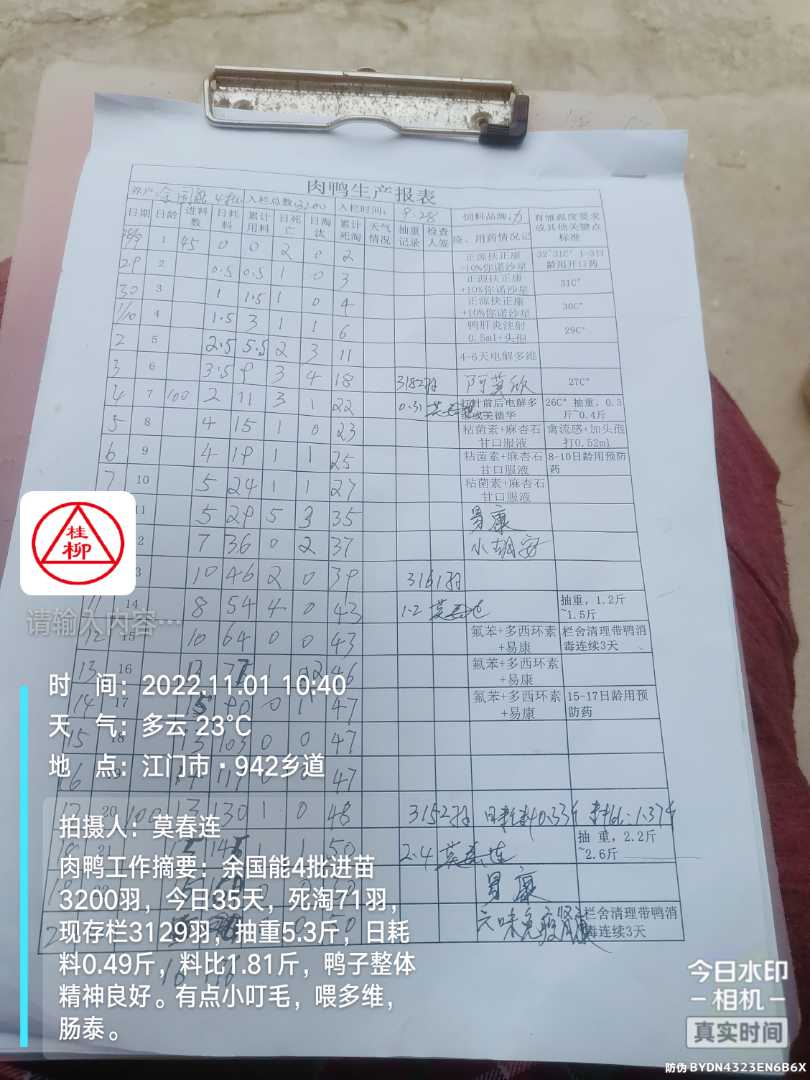 肉鸭生产报表
养户: 余国能 4批 入栏总数: 3200 入栏时间: 9.28 饲料品牌: 力 育雏温度要求或其他关键点标准
日期 日龄 进料数 日耗料 累计用料 日死亡 日淘汰 累计死淘 天气情况 抽重记录 检查人签 险、用药情况记
28/9 1 45 0 0 2 0 2 正源扶正康+10%你诺沙星 32~31C° 1-3日龄用开口药
29 2 0.5 0.5 1 0 3 正源扶正康+10%你诺沙星 31C°
30 3 1 1.5 1 0 4 正源扶正康+10%你诺沙星 30C°
1/10 4 1.5 3 1 1 6 鸭肝炎注射0.5ml+头孢 29C°
2 5 2.5 5.5 2 3 11 4-6天电解多维
3 6 3.5 9 3 4 18 3182羽 阿莫欣 27C°
4 7 100 2 11 3 1 22 0.31 莫春连 打针前后电解多 26C° 抽重,0.3斤~0.4斤
5 8 4 15 1 0 23 粘菌素+麻杏石甘口服液 禽流感+加头孢打0.52ml
6 9 4 19 1 1 25 粘菌素+麻杏石甘口服液 8-10日龄用预防药
7 10 5 24 1 1 27 粘菌素+麻杏石甘口服液
11 5 29 5 3 35 易康
2 7 36 0 2 37
3 10 46 2 0 39 3161羽
14 8 54 4 0 43 1.2 莫春连 抽重,1.2斤~1.5斤
12 15 10 64 0 0 43 氟苯+多西环素+易康 栏舍清理带鸭消毒连续3天
13 16 13 77 1 2 46 氟苯+多西环素+易康
14 17 0 1 47 氟苯+多西环素+易康 15-17日龄用预防药
15 18 13 103 0 0 47
16 19 0 0 47
17 20 100 13 130 1 0 48 3152羽 日耗料0.33斤 料比:1.37斤
1 1 50 2.4 莫春连 抽重,2.2斤~2.6斤
易康
0 50 六味免疫 栏舍清理带鸭消毒连续3天
桂柳
请输入内容…
时 间: 2022.11.01 10:40
天 气: 多云 23℃
地 点: 江门市·942乡道
拍摄人: 莫春连
肉鸭工作摘要: 余国能4批进苗
3200羽,今日35天,死淘71羽,
现存栏3129羽,抽重5.3斤,日耗
料0.49斤,料比1.81斤,鸭子整体
精神良好。有点小叮毛,喂多维,
肠泰。
今日水印
相机
真实时间
防伪 BYDN4323EN6B6X